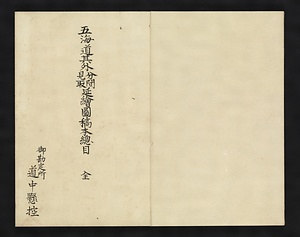 五海道其外分間見取延繪圖稿本總目　全
御勘定所
道中懸控